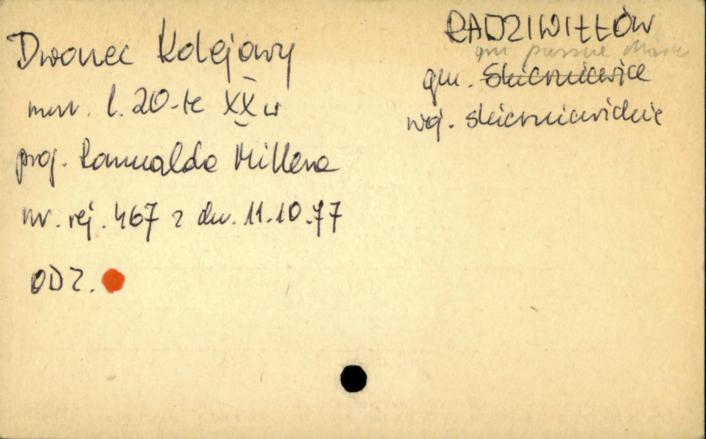 Dworzec Kolejowy
mur. l. 20-te XX w
proj. Romualda Millera
nr. rej. 467 z dn. 11.10.77
ODZ.
RADZIWIŁŁÓW
gm.
gm. Skierniewice
woj. skierniewickie